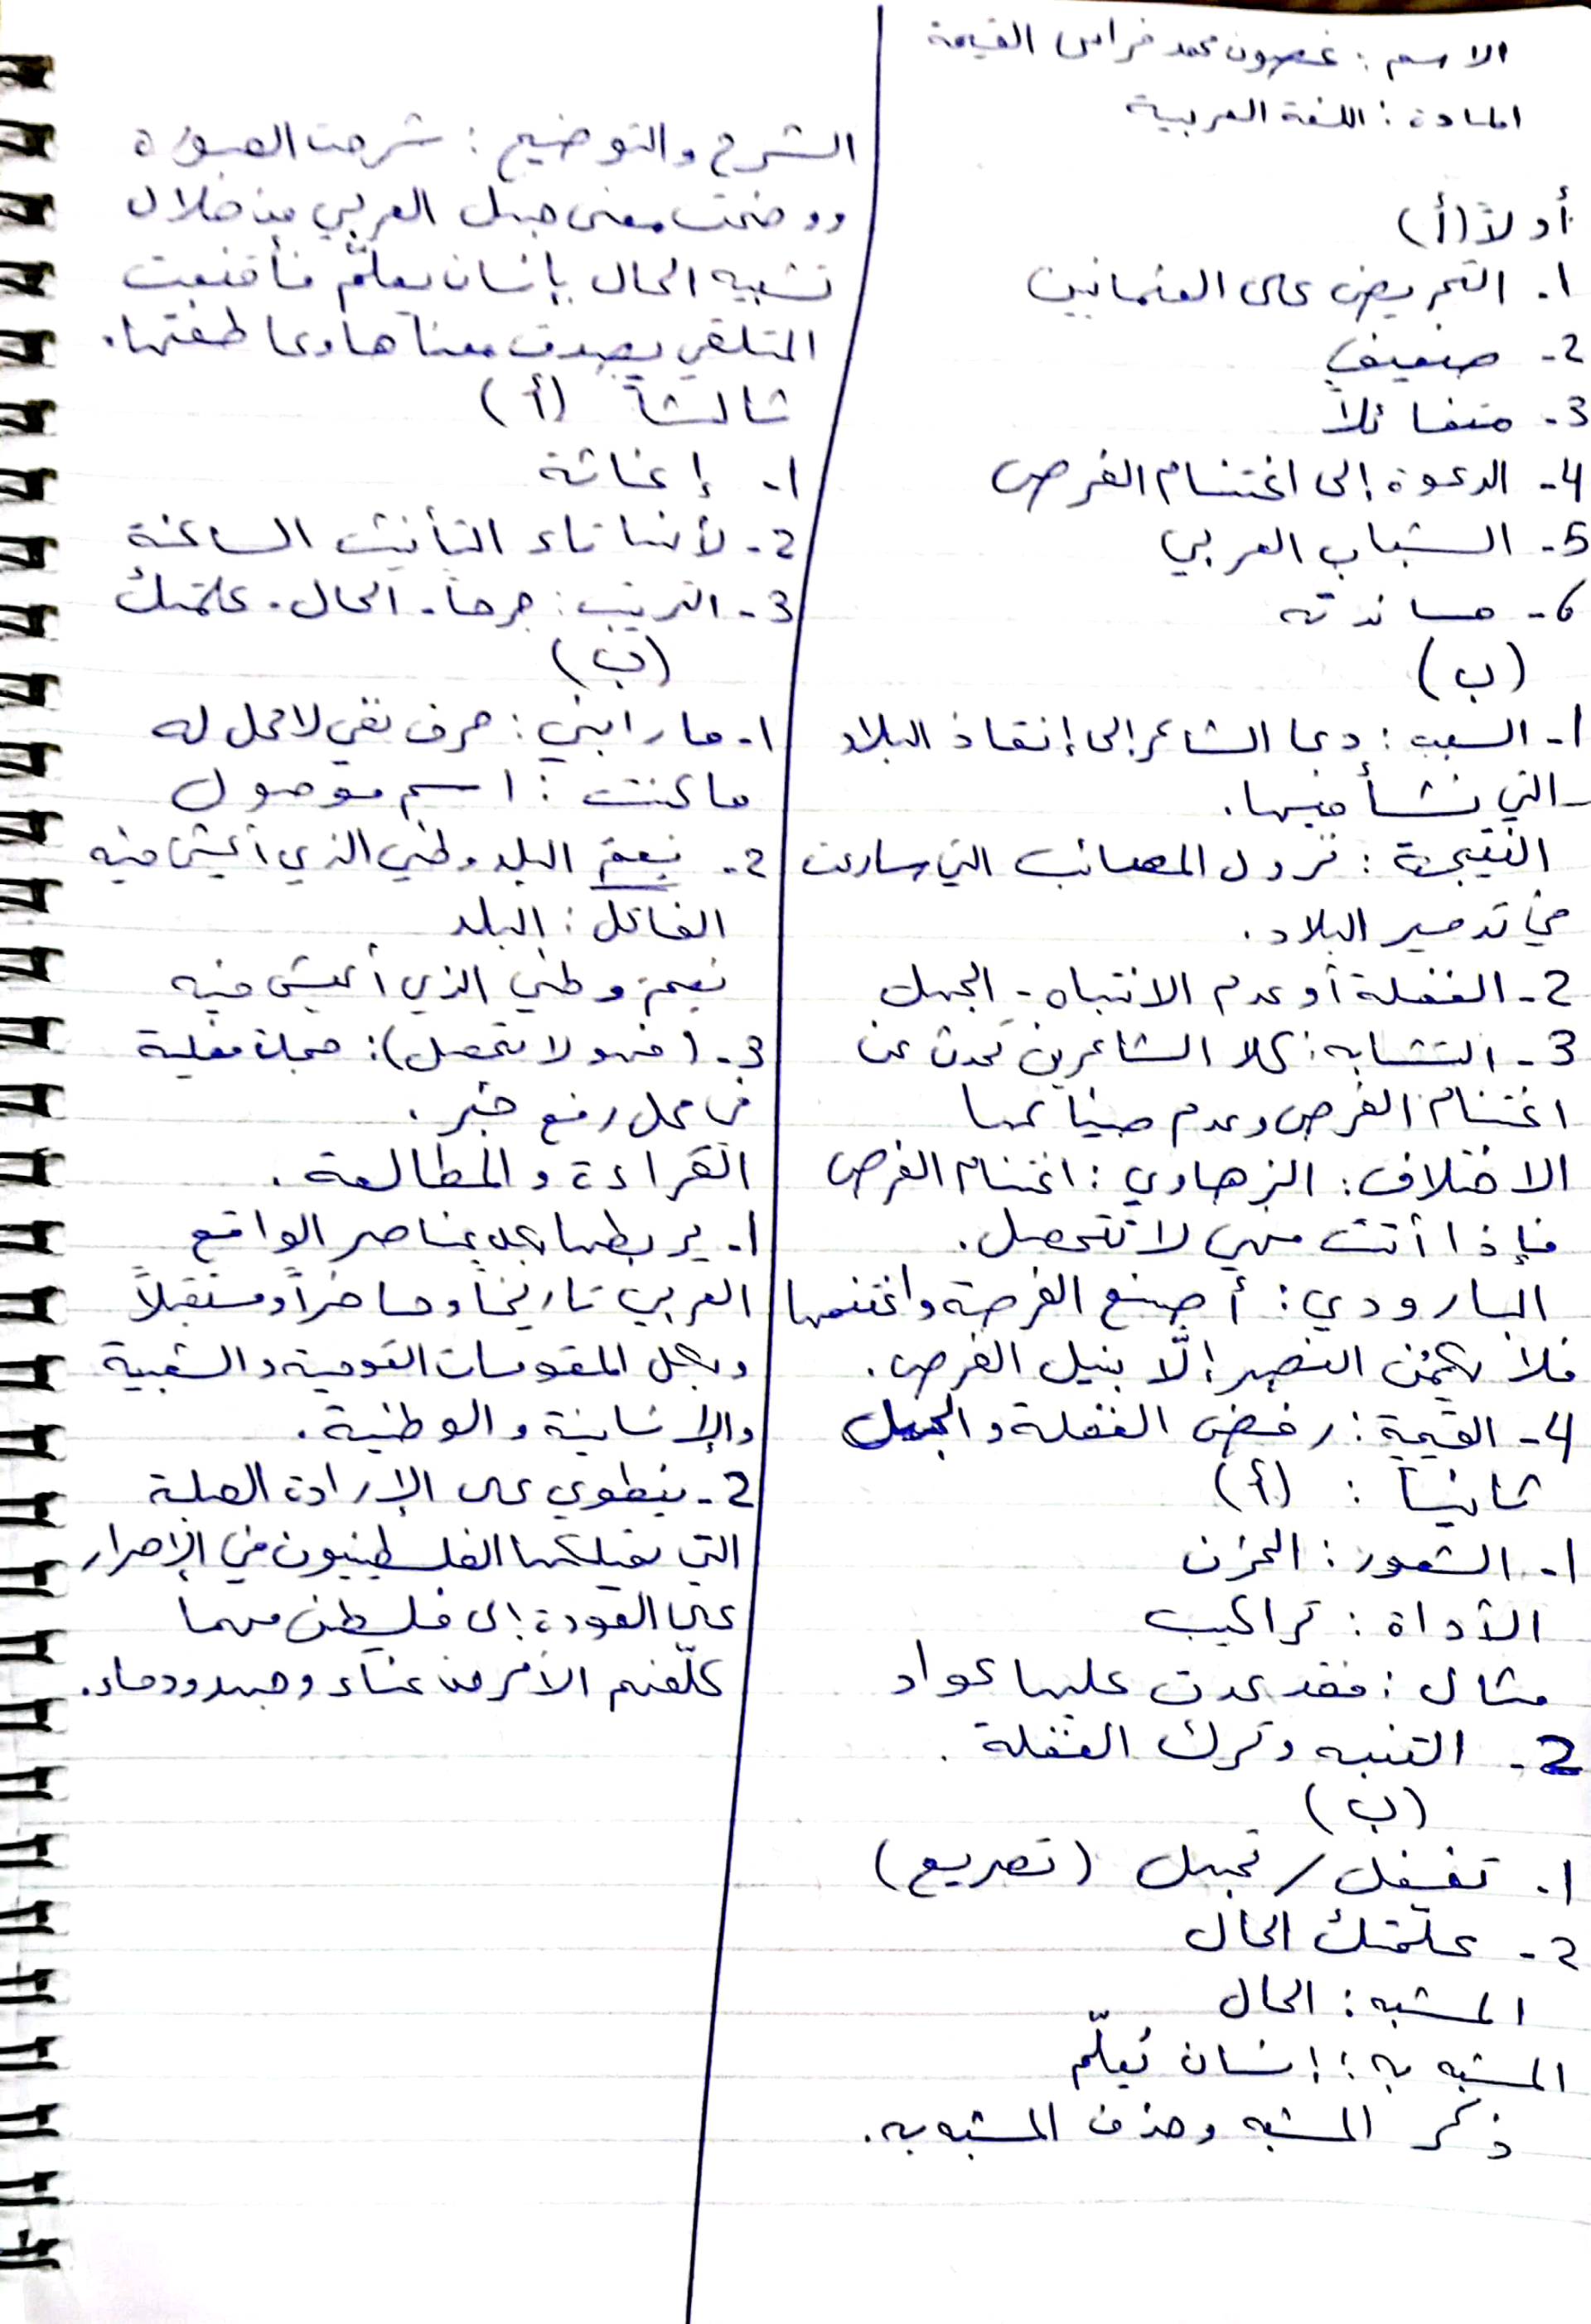 الاسم : غصون محمد فراس القيمة
المادة : اللغة العربية
أولاً (أ)
1. التحريض على العثمانيين
2- ضعيف
3. متفائلاً
4- الدعوة إلى اغتنام الفرص
5- الشباب العربي
6- مساندته
(ب)
1- السبب : دعا الشاعر إلى إنقاذ البلاد
التي نشأ فيها.
النتيجة : نزول المصائب التي سارعت
في تدمير البلاد.
2- الغفلة أو عدم الانتباه - الجهل
3- التشابه : كلا الشاعرين تحدث عن
اغتنام الفرص وعدم ضياعها
الاختلاف : الزهاوي : اغتنام الفرص
فإذا أتت فهي لا تتحصل.
البارودي : أصنع الفرصة واغتنمها
فلا يكمُن النصر إلّا بنيل الفرص.
4- القيمة : رفض الغفلة والجهل
ثانياً : (أ)
1. الشعور : الحزن
الأداة : تراكيب
مثال : فقد عدت عليها عواد
2- التنبه وترك الغفلة .
(ب)
1. تغفل / تجهل (تصريع)
2- علّمتك الحال
المشبه : الحال
المشبه به : إنسان يُعلّم
ذكر المشبه وحذف المشبه به.
الشرح والتوضيح : شرحت الصورة
ووضحت معنى جهل العربي من خلال
تشبيه الحال بإنسان يعلّم فأقنعت
المتلقي بصدق معناها وعاطفتها.
ثالثاً (أ)
1- إغاثة
2- لأنها تاء التأنيث الساكنة
3- الترتيب : جرحاً - الحال - علّمتك
(ب)
1- ما رابني : حرف نفي لا محل له
ما كنت : اسم موصول
2- نعم البلد وطني الذي أعيش فيه
الفاعل : البلد
نعم وطني الذي أعيش فيه
3- (فهو لا تحصل) : جملة فعلية
في محل رفع خبر .
القراءة والمطالعة .
1. يربطها بكل عناصر الواقع
العربي تاريخاً وحاضراً ومستقبلاً
وبكل المقومات القومية والشعبية
والإنسانية والوطنية .
2- ينطوي على الإرادة الصلبة
التي يمتلكها الفلسطينيون في الإصرار
على العودة إلى فلسطين مهما
كلّفهم الأمر من عناء وجهد ودماء.